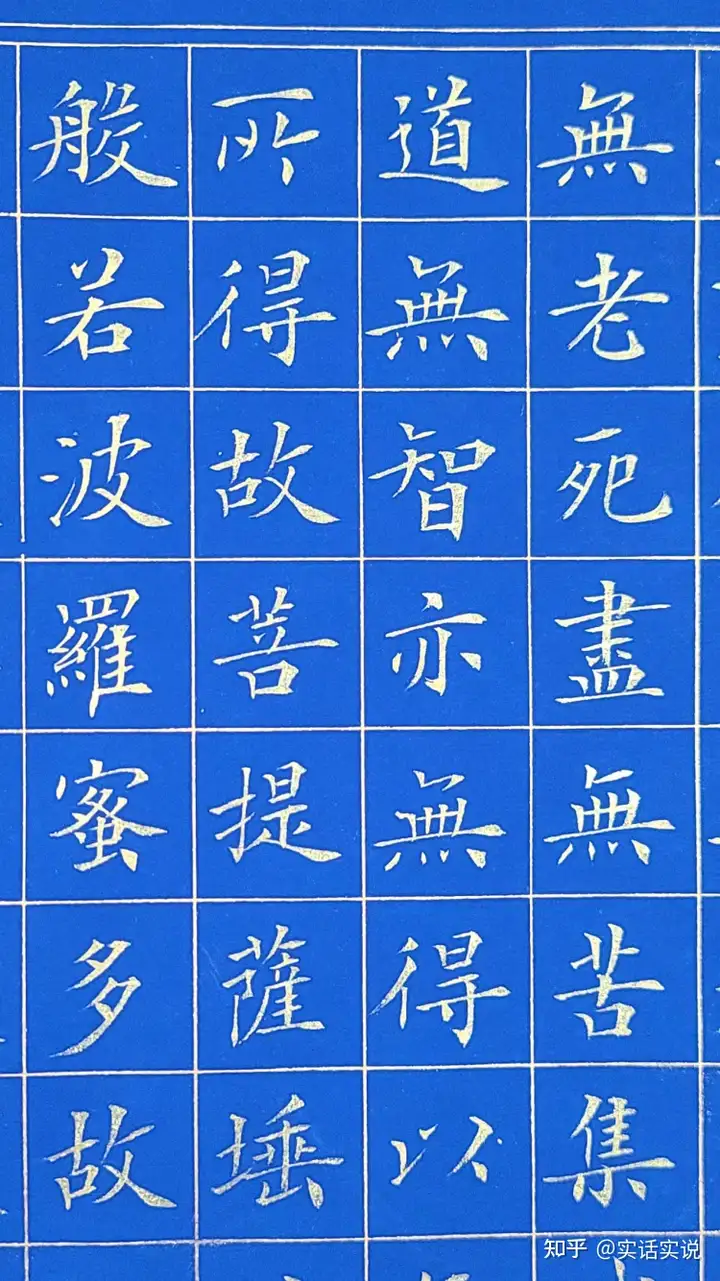 無老死盡無苦集
道無智亦無得以
所得故菩提薩埵
般若波羅蜜多故
知乎 @实话实说